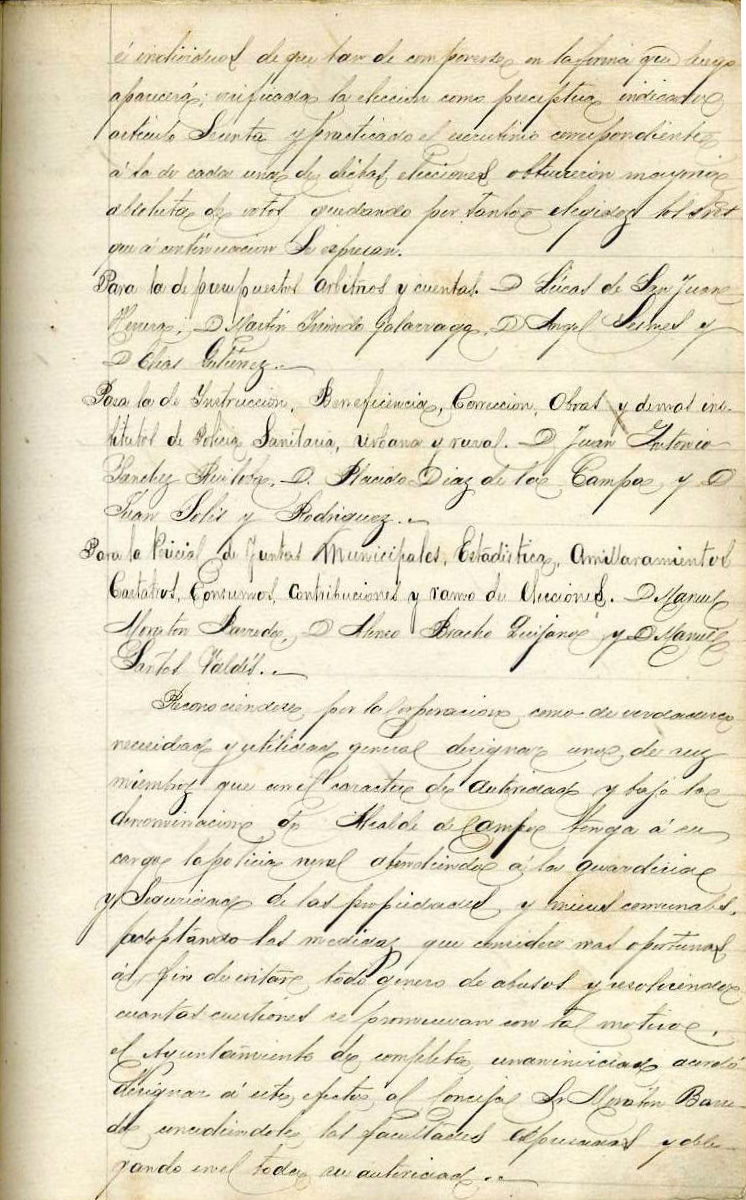 é individuos de que han de componerse en la forma que luego
aparecerá; verificada la eleccion como preceptua indicado
articulo Secenta y practicado el escrutinio correspondiente
á la de cada una de dichas elecciones obtuvieron mayoria
absoluta de votos quedando por tanto elegidos los Sres
que á continuacion Se espresan.
Para la de presupuestos arbitrios y cuentas. D Lúcas de San Juan
Herrera, D Martin Galarraga, D Angel y
D Elias Gutierrez.
Para la de Instruccion, Beneficencia, Correccion, Obras y demas ins-
titutos de Policia Sanitaria, urbana y rural. D Juan Antonio
Sanchez D. Placido Diaz de los Campos y D
Juan Solis y Rodriguez.
Para la Pericial de Juntas Municipales, Estadistica, Amillaramientos
Castatros, Consumos, Contribuciones y ramo de elecciones. D Manuel
Moraton Barredo, D Bracho Quijano, y D Manuel
Santos Valdés.
Reconociendose por la Corporacion como de verdadera
necesidad y utilidad general designar uno de sus
miembros que con el caracter de autoridad y bajo la
denominacion de Alcalde de Campo tenga á su
cargo la policia rural atendiendo á la guarderia
y Seguridad de las propiedades y mieses comunales,
adoptando las medidas que considere mas oportunas
á fin de evitar todo genero de abusos y resolviendo
cuantas cuestiones se promuevan con tal motivo,
el Ayuntamiento de completa unanimidad acordó
designar á este efecto al Concejal Sr Moraton Barre-
do concediendole las facultades espresadas y dele-
gando en el toda su autoridad.